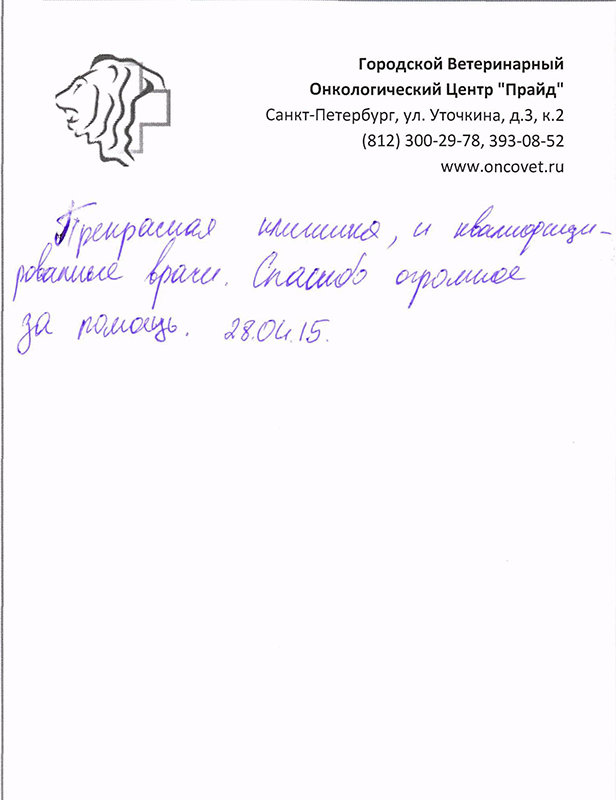 Городской Ветеринарный
Онкологический Центр "Прайд"
Санкт-Петербург, ул. Уточкина, д.3, к.2
(812) 300-29-78, 393-08-52
www.oncovet.ru
Прекрасная клиника, и квалифици-
рованные врачи. Спасибо огромное
за помощь. 28.04.15.